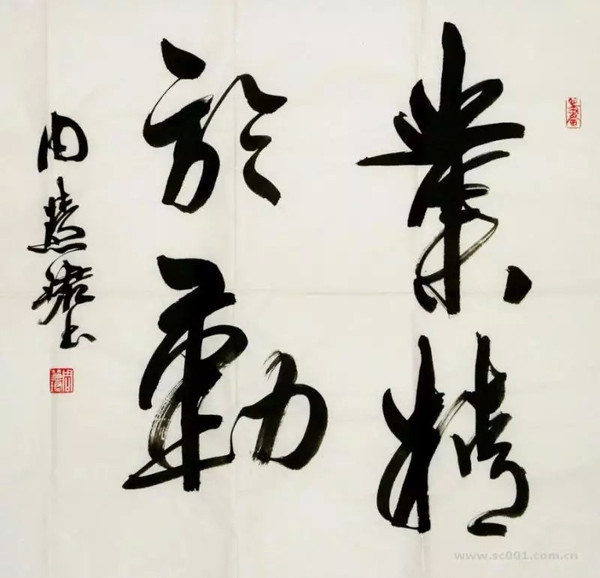 業精
於勤
周慧珺书
www.sc001.com.cn